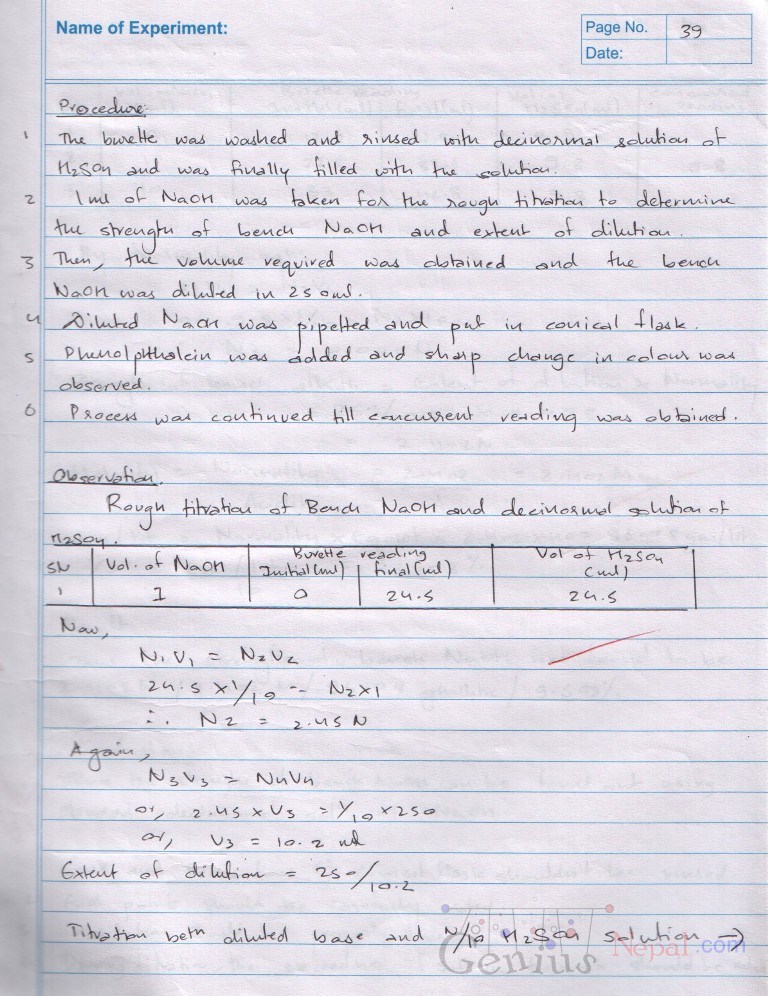 Name of Experiment:
Page No. 39
Date:
Procedure:
1 The burette was washed and rinsed with decinormal solution of
H2SO4 and was finally filled with the solution.
2 1ml of NaOH was taken for the rough titration to determine
the strength of bench NaOH and extent of dilution.
3 Then, the volume required was obtained and the bench
NaOH was diluted in 250ml.
4 Diluted NaOH was pipetted and put in conical flask.
5 Phenolphthalein was added and sharp change in colour was
observed.
6 Process was continued till concurrent reading was obtained.
Observation.
Rough titration of Bench NaOH and decinormal solution of
H2SO4.
SN Vol. of NaOH Burette reading Vol of H2SO4
Initial (ml) final (ml) (ml)
1 1 0 24.5 24.5
Now,
N1V1 = N2V2
24.5 x 1/10 = N2x1
∴ N2 = 2.45 N
Again,
N3V3 = N4V4
or, 2.45 x V3 = 1/10 x 250
or, V3 = 10.2 ml
Extent of dilution = 250/10.2
Titration betn diluted base and N/10 H2SO4 solution →
Genius Nepal.com